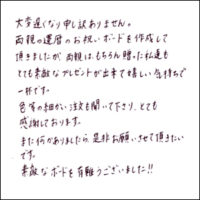 大変遅くなり申し訳ありません。
両親の還暦のお祝いボードを作成して
頂きましたが、両親はもちろん贈った私達も
とても素敵なプレゼントが出来て嬉しい気持ちで
一杯です。
色々の細かい注文も聞いて下さり、とても
感謝しております。
また何かありましたら、是非お願いさせて頂きたい
です。
素敵なボードを有難うございました!!